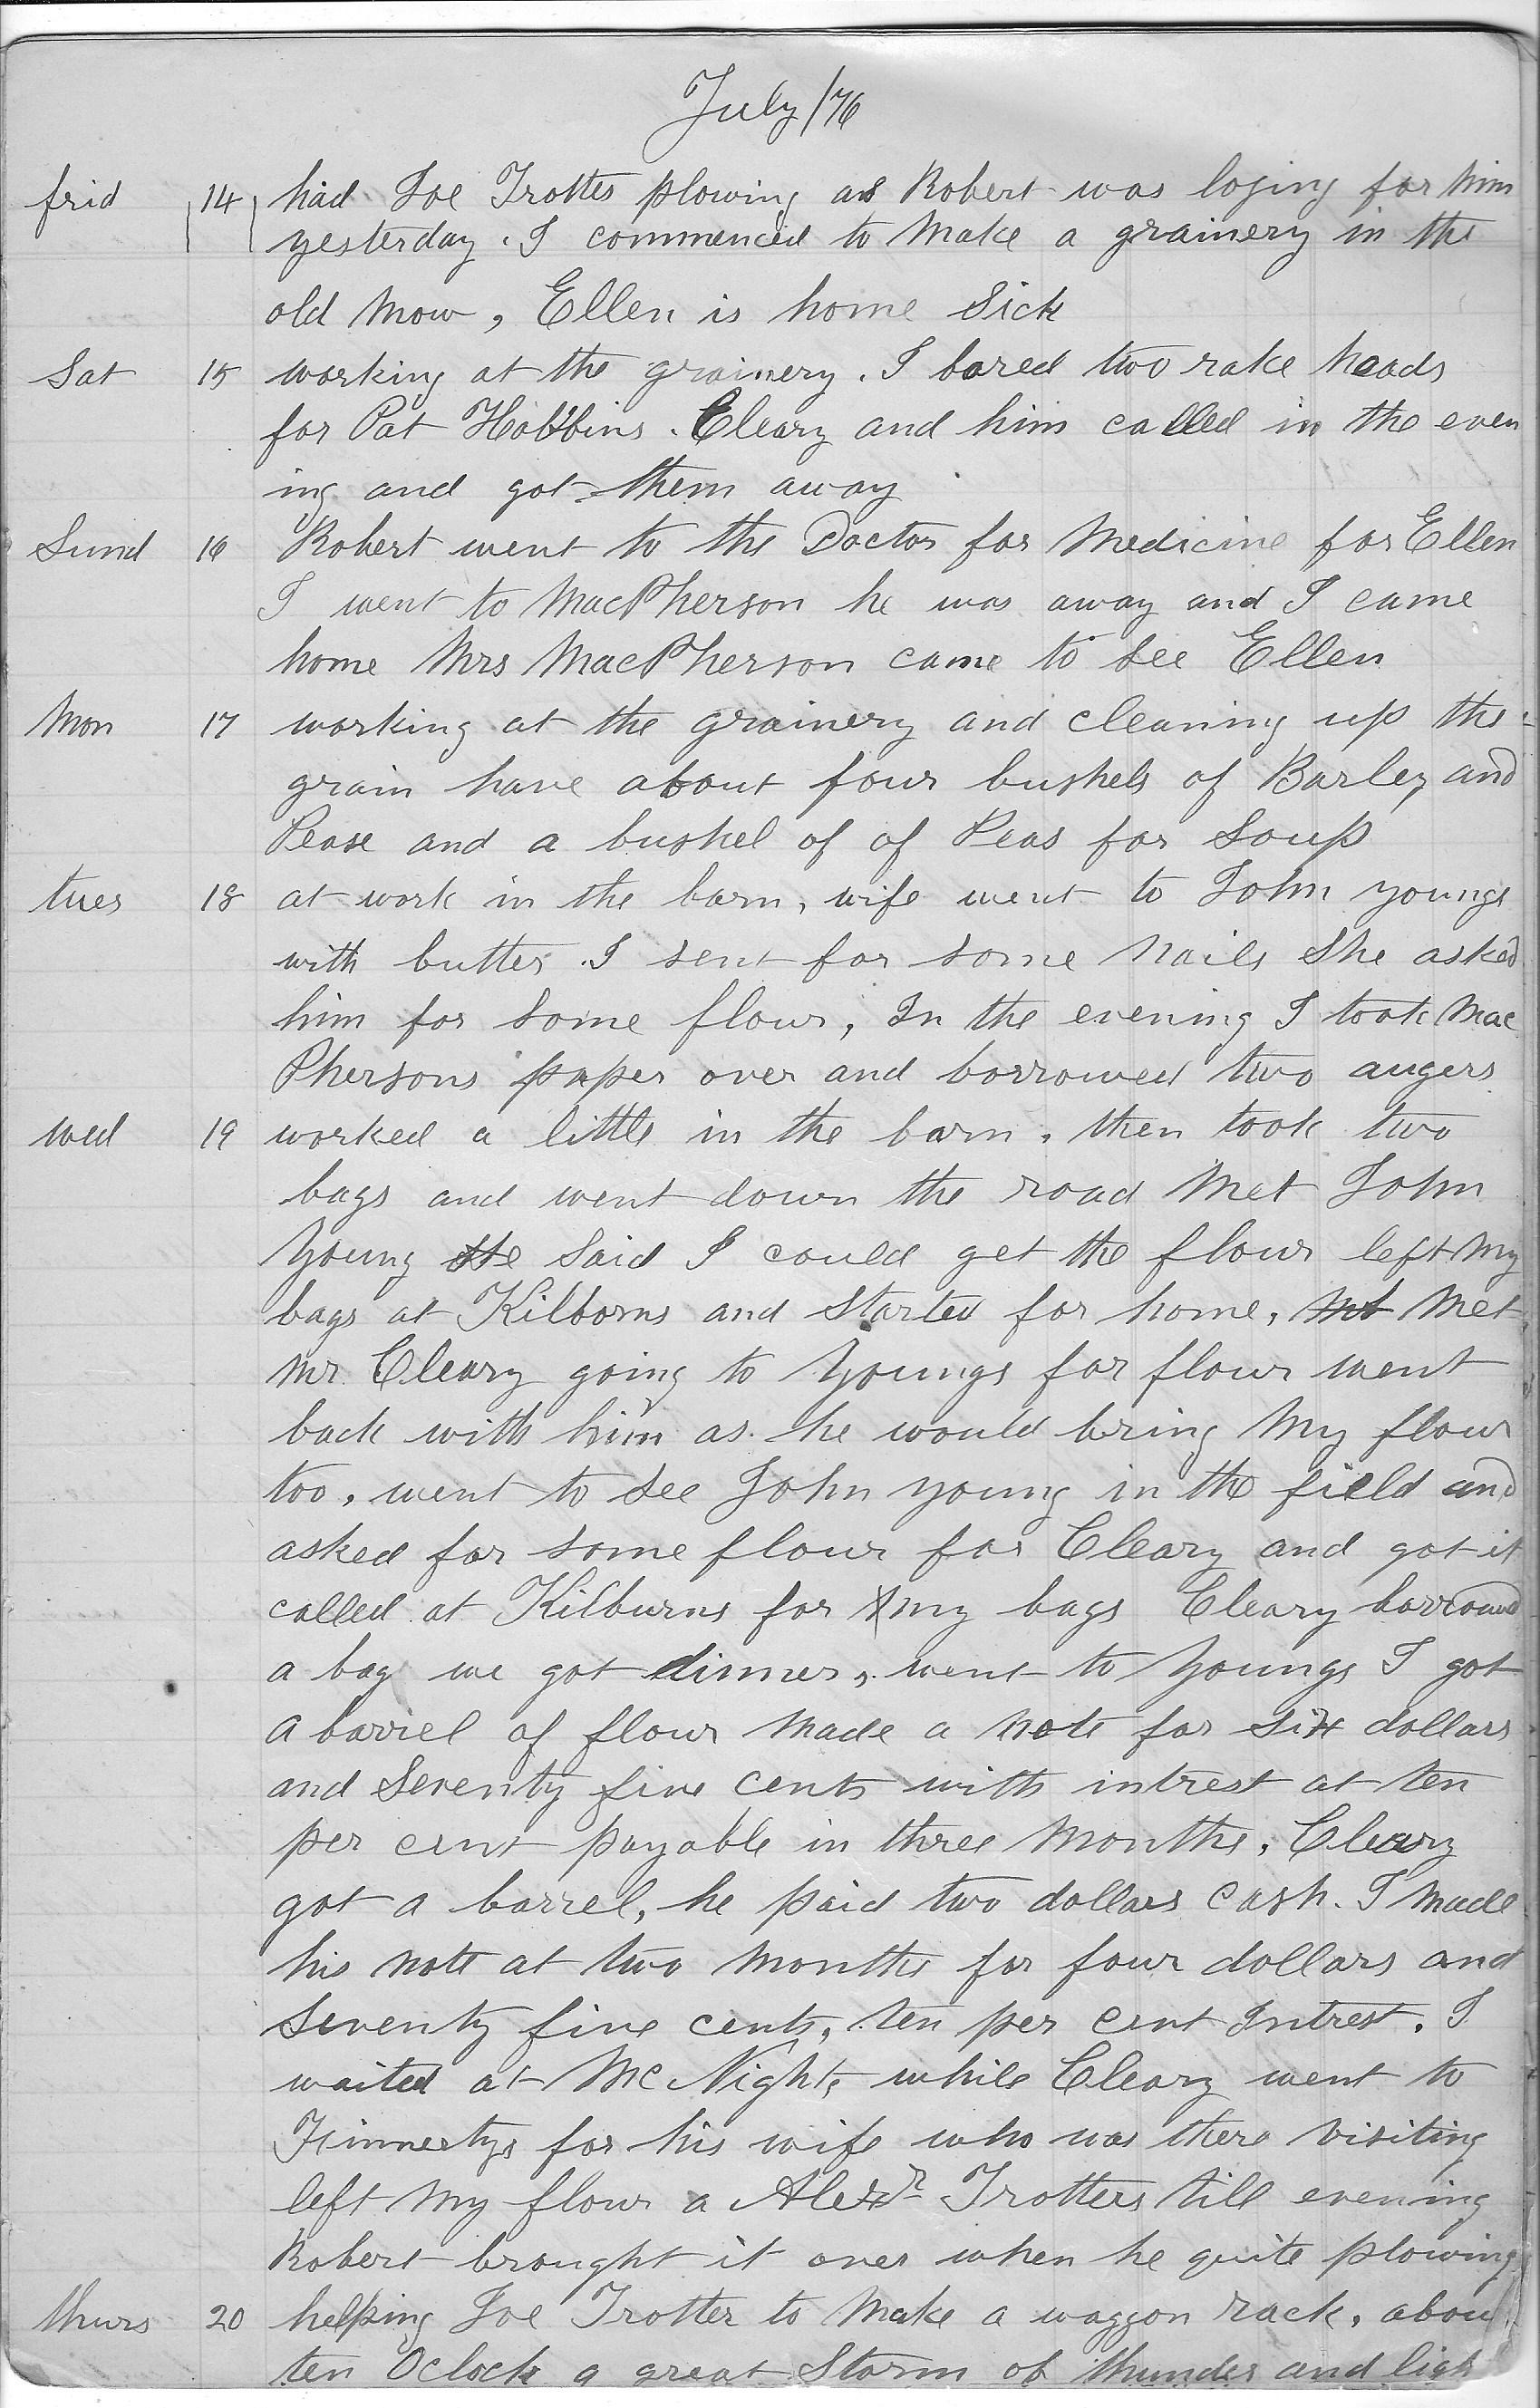 July /76
frid 14 had Joe Trotter plowing as Robert was loging for him
yesterday. I commenced to Make a grainery in the
old Mow, Ellen is home Sick
Sat 15 working at the grainery. I bored two rake heads
for Pat Hobbins. Cleary and him called in the even
ing and got them away
Sund 16 Robert went to the Doctor for Medicine for Ellen
I went to MacPherson he was away and I came
home Mrs MacPherson came to see Ellen
Mon 17 working at the grainery and cleaning up the
grain have about four bushels of Barley and
Pease and a bushel of of Peas for Soup
tues 18 at work in the barn, wife went to John Youngs
with butter. I sent for some Nails She asked
him for some flour, In the evening I took Mac
Phersons paper over and borrowed two augers
wed 19 worked a little in the barn, then took two
bags and went down the road Met John
Young He Said I could get the flour left My
bags at Kilborns and Started for home, Met
Mr Cleary going to Youngs for flour went
back with him as he would bring My flour
too, went to see John Young in the field and
asked for some flour for Cleary and got it
called at Kilburns for my bags Cleary borrowed
a bag we got dinner, went to Youngs I got
a barrel of flour Made a note for six dollars
and Seventy five cents with intrest at ten
per cent payable in three Months, Cleary
got a barrel, he paid two dollars cash. I Made
his note at two Months for four dollars and
Seventy five cents, ten per cent Intrest. I
waited at McNights while Cleary went to
Finnertys for his wife who was there visiting
left My flour a Alexr Trotters till evening
Robert brought it over when he quite plowing
thurs 20 helping Joe Trotter to Make a waggon rack, abou
ten Oclock a great Storm of thunder and ligh